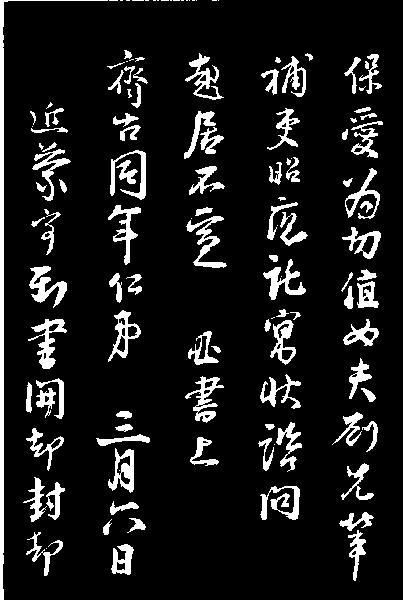 保愛為切值女夫劉兄
補更昭應託寓狀諮問
起居不宣 書上
齊古同年仁弟 三月六日
近蒙字到書開却封却